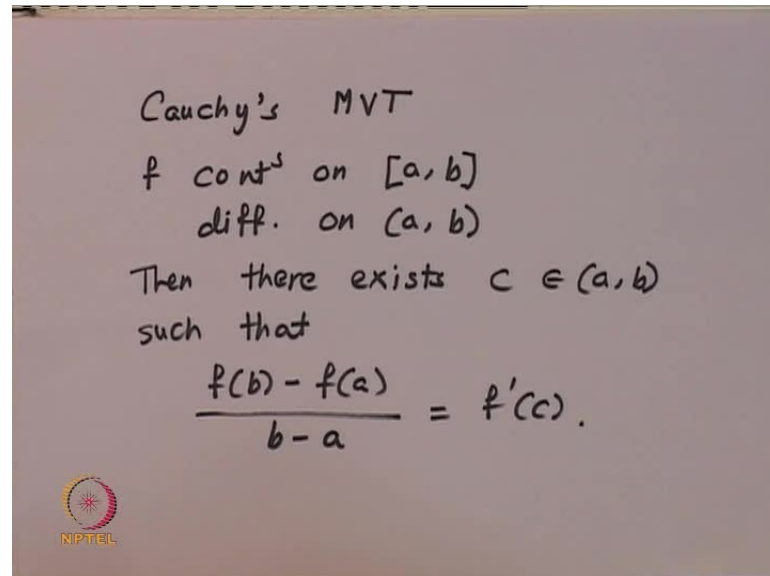 Cauchy's MVT
f contˢ on [a, b]
diff. on (a, b)
Then there exists c ∈ (a, b)
such that
f(b) - f(a)
b - a
= f'(c).
NPTEL